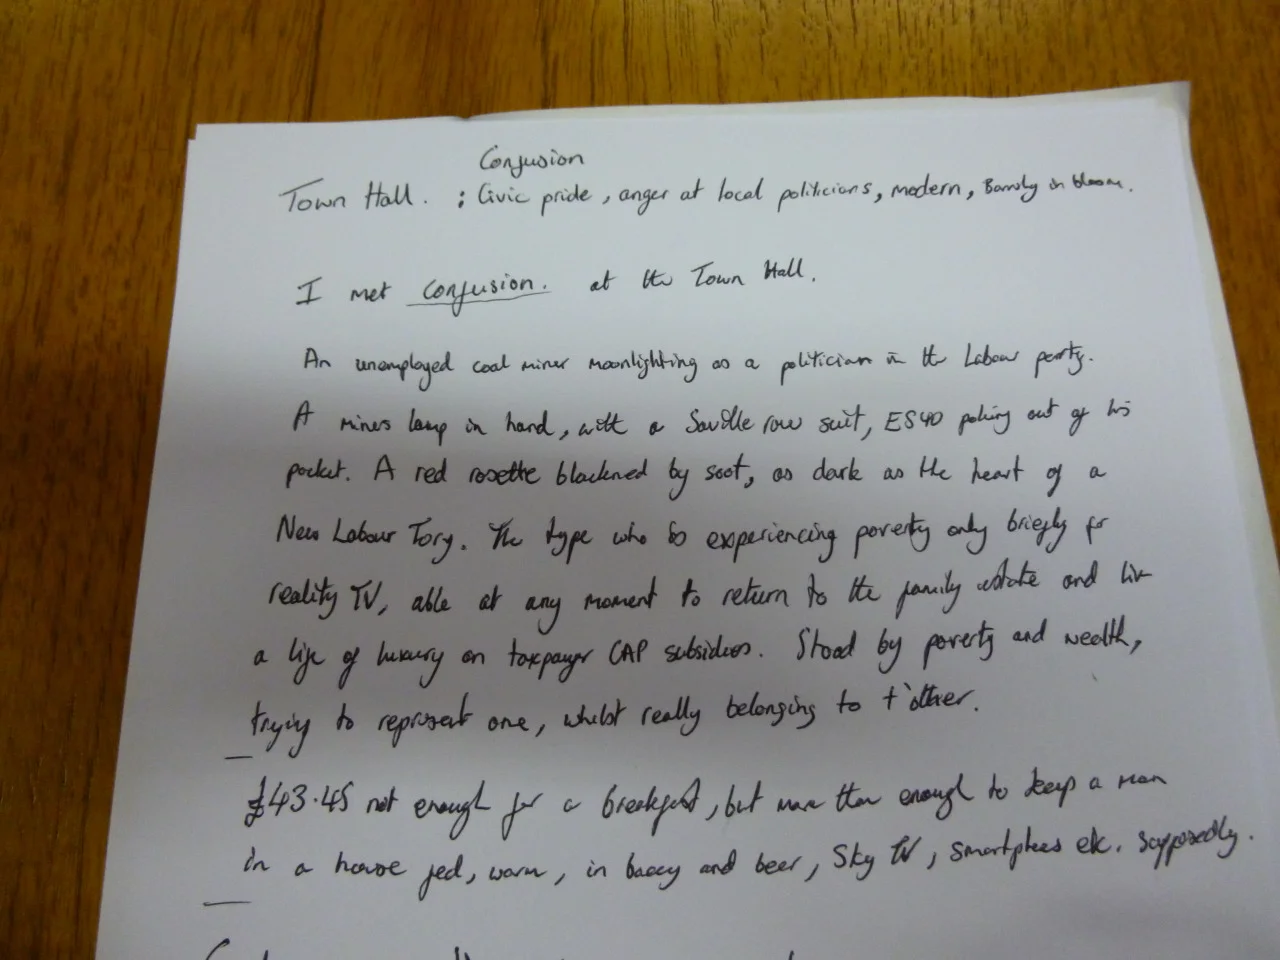 Confusion
Town Hall. : Civic pride, anger at local politicians, modern, Barnsley in bloom.
I met confusion. at the Town Hall.
An unemployed coal miner moonlighting as a politician in the Labour party.
A miners lamp in hand, with a Saville row suit, ES40 poking out of his
pocket. A red rosette blackened by soot, as dark as the heart of a
New Labour Tory. The type who is experiencing poverty only briefly for
reality TV, able at any moment to return to the family estate and live
a life of luxury on taxpayer CAP subsidies. Stood by poverty and wealth,
trying to represent one, whilst really belonging to t'other.
£43.45 not enough for a breakfast, but more than enough to keep a man
in a house fed, warm, in baccy and beer, Sky TV, smartphones etc. supposedly.